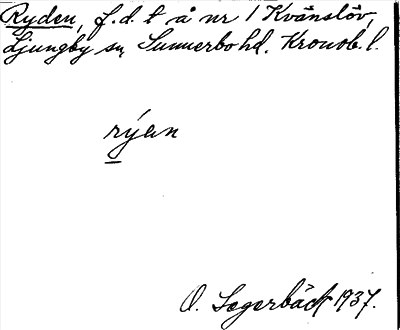 Ryden, f.d. t å nr 1 Kvänslöv,
Ljungby sn, Sunnerbo hd. Kronob. l.
rýən
O. Segerbäck 1937.